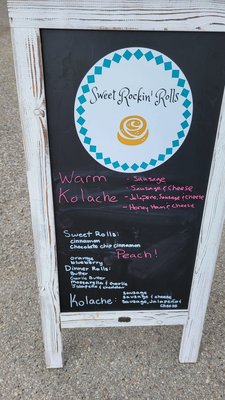 Sweet Rockin' Rolls
Warm
Kolache
- Sausage
- Sausage & Cheese
- Jalapeno, Sausage & Cheese
- Honey Ham & Cheese
Sweet Rolls:
cinnamon
Chocolate chip cinnamon
Peach!
orange
blueberry
Dinner Rolls:
Butter
Garlic Butter
Mozzarella & Garlic
Jalapeño & cheddar
Kolache:
Sausage
sausage & cheese
Sausage, Jalapeño &